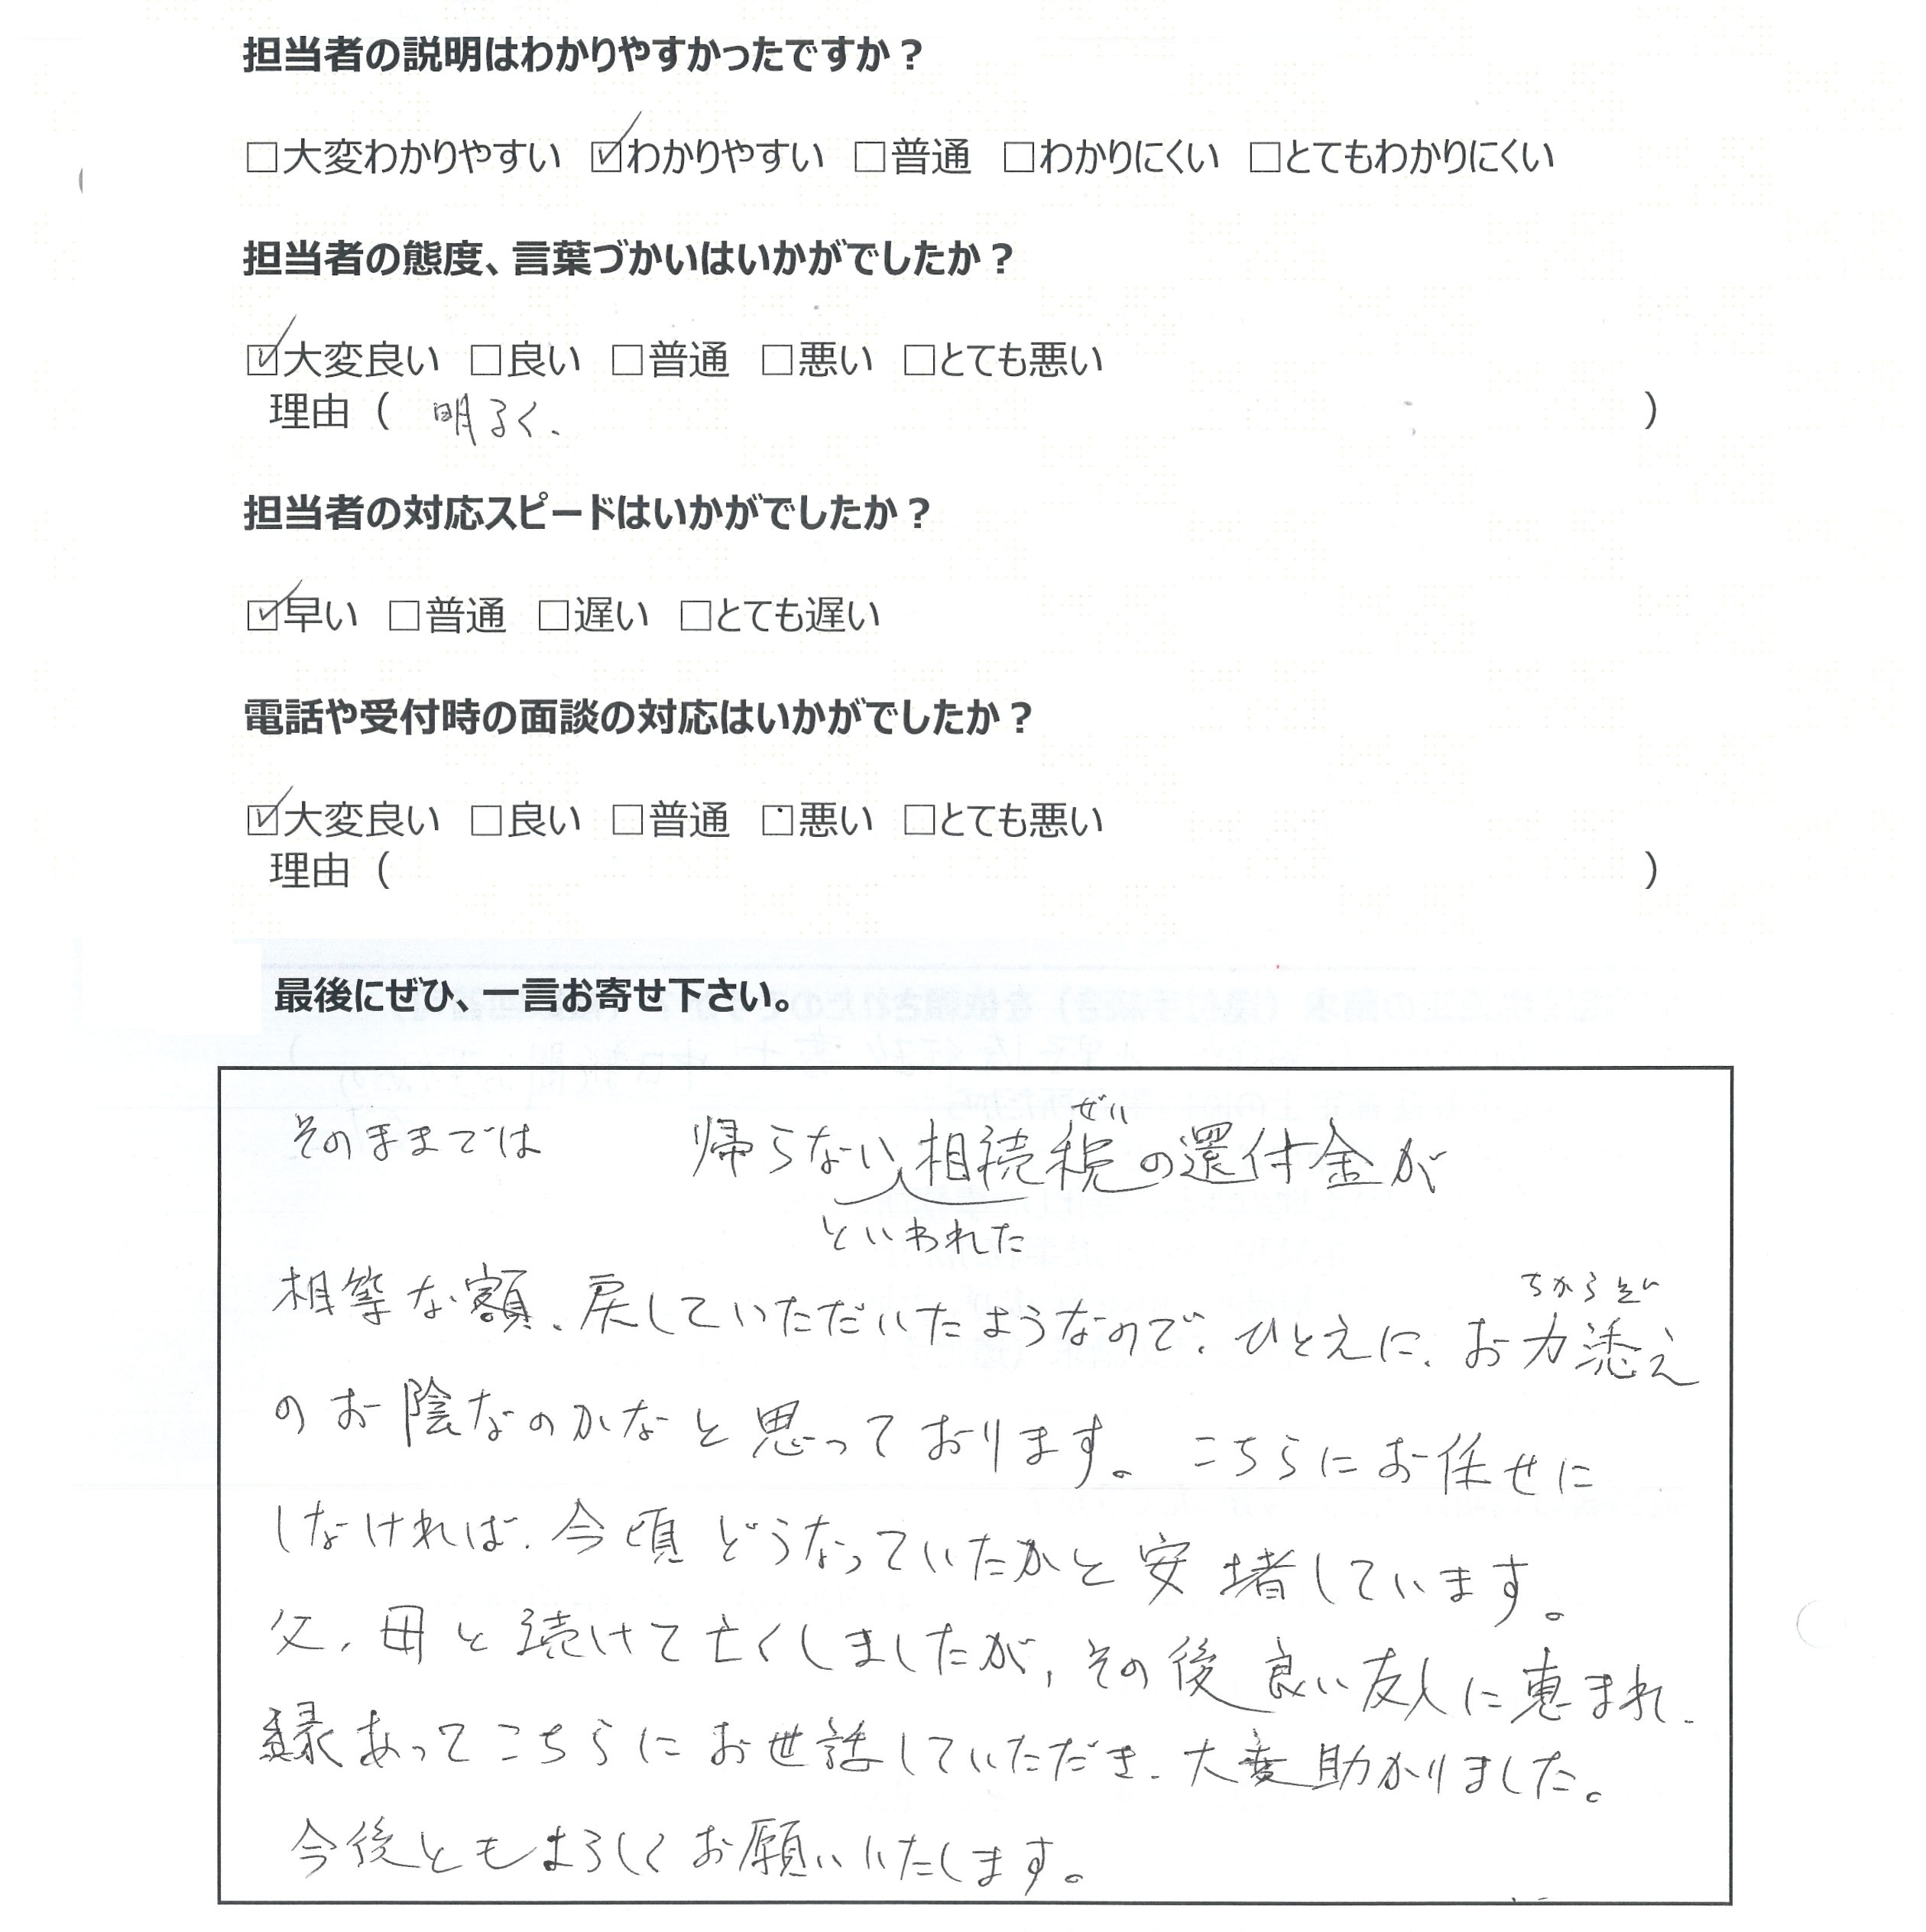 担当者の説明はわかりやすかったですか？
□大変わかりやすい ☑わかりやすい □普通 □わかりにくい □とてもわかりにくい
担当者の態度、言葉づかいはいかがでしたか？
☑大変良い □良い □普通 □悪い □とても悪い
理由（ 明るく、 ）
担当者の対応スピードはいかがでしたか？
☑早い □普通 □遅い □とても遅い
電話や受付時の面談の対応はいかがでしたか？
☑大変良い □良い □普通 □悪い □とても悪い
理由（ ）
最後にぜひ、一言お寄せ下さい。
ぜい
そのままでは 帰らない相続税の還付金が
といわれた
ちからぞい
相等な額、戻していただいたようなので、ひとえに、お力添え
のお陰なのかなと思っております。こちらにお任せに
しなければ、今頃どうなっていたかと安堵しています。
父、母と続けて亡くしましたが、その後良い友人に恵まれ、
縁あってこちらにお世話していただき、大変助かりました。
今後ともよろしくお願いいたします。